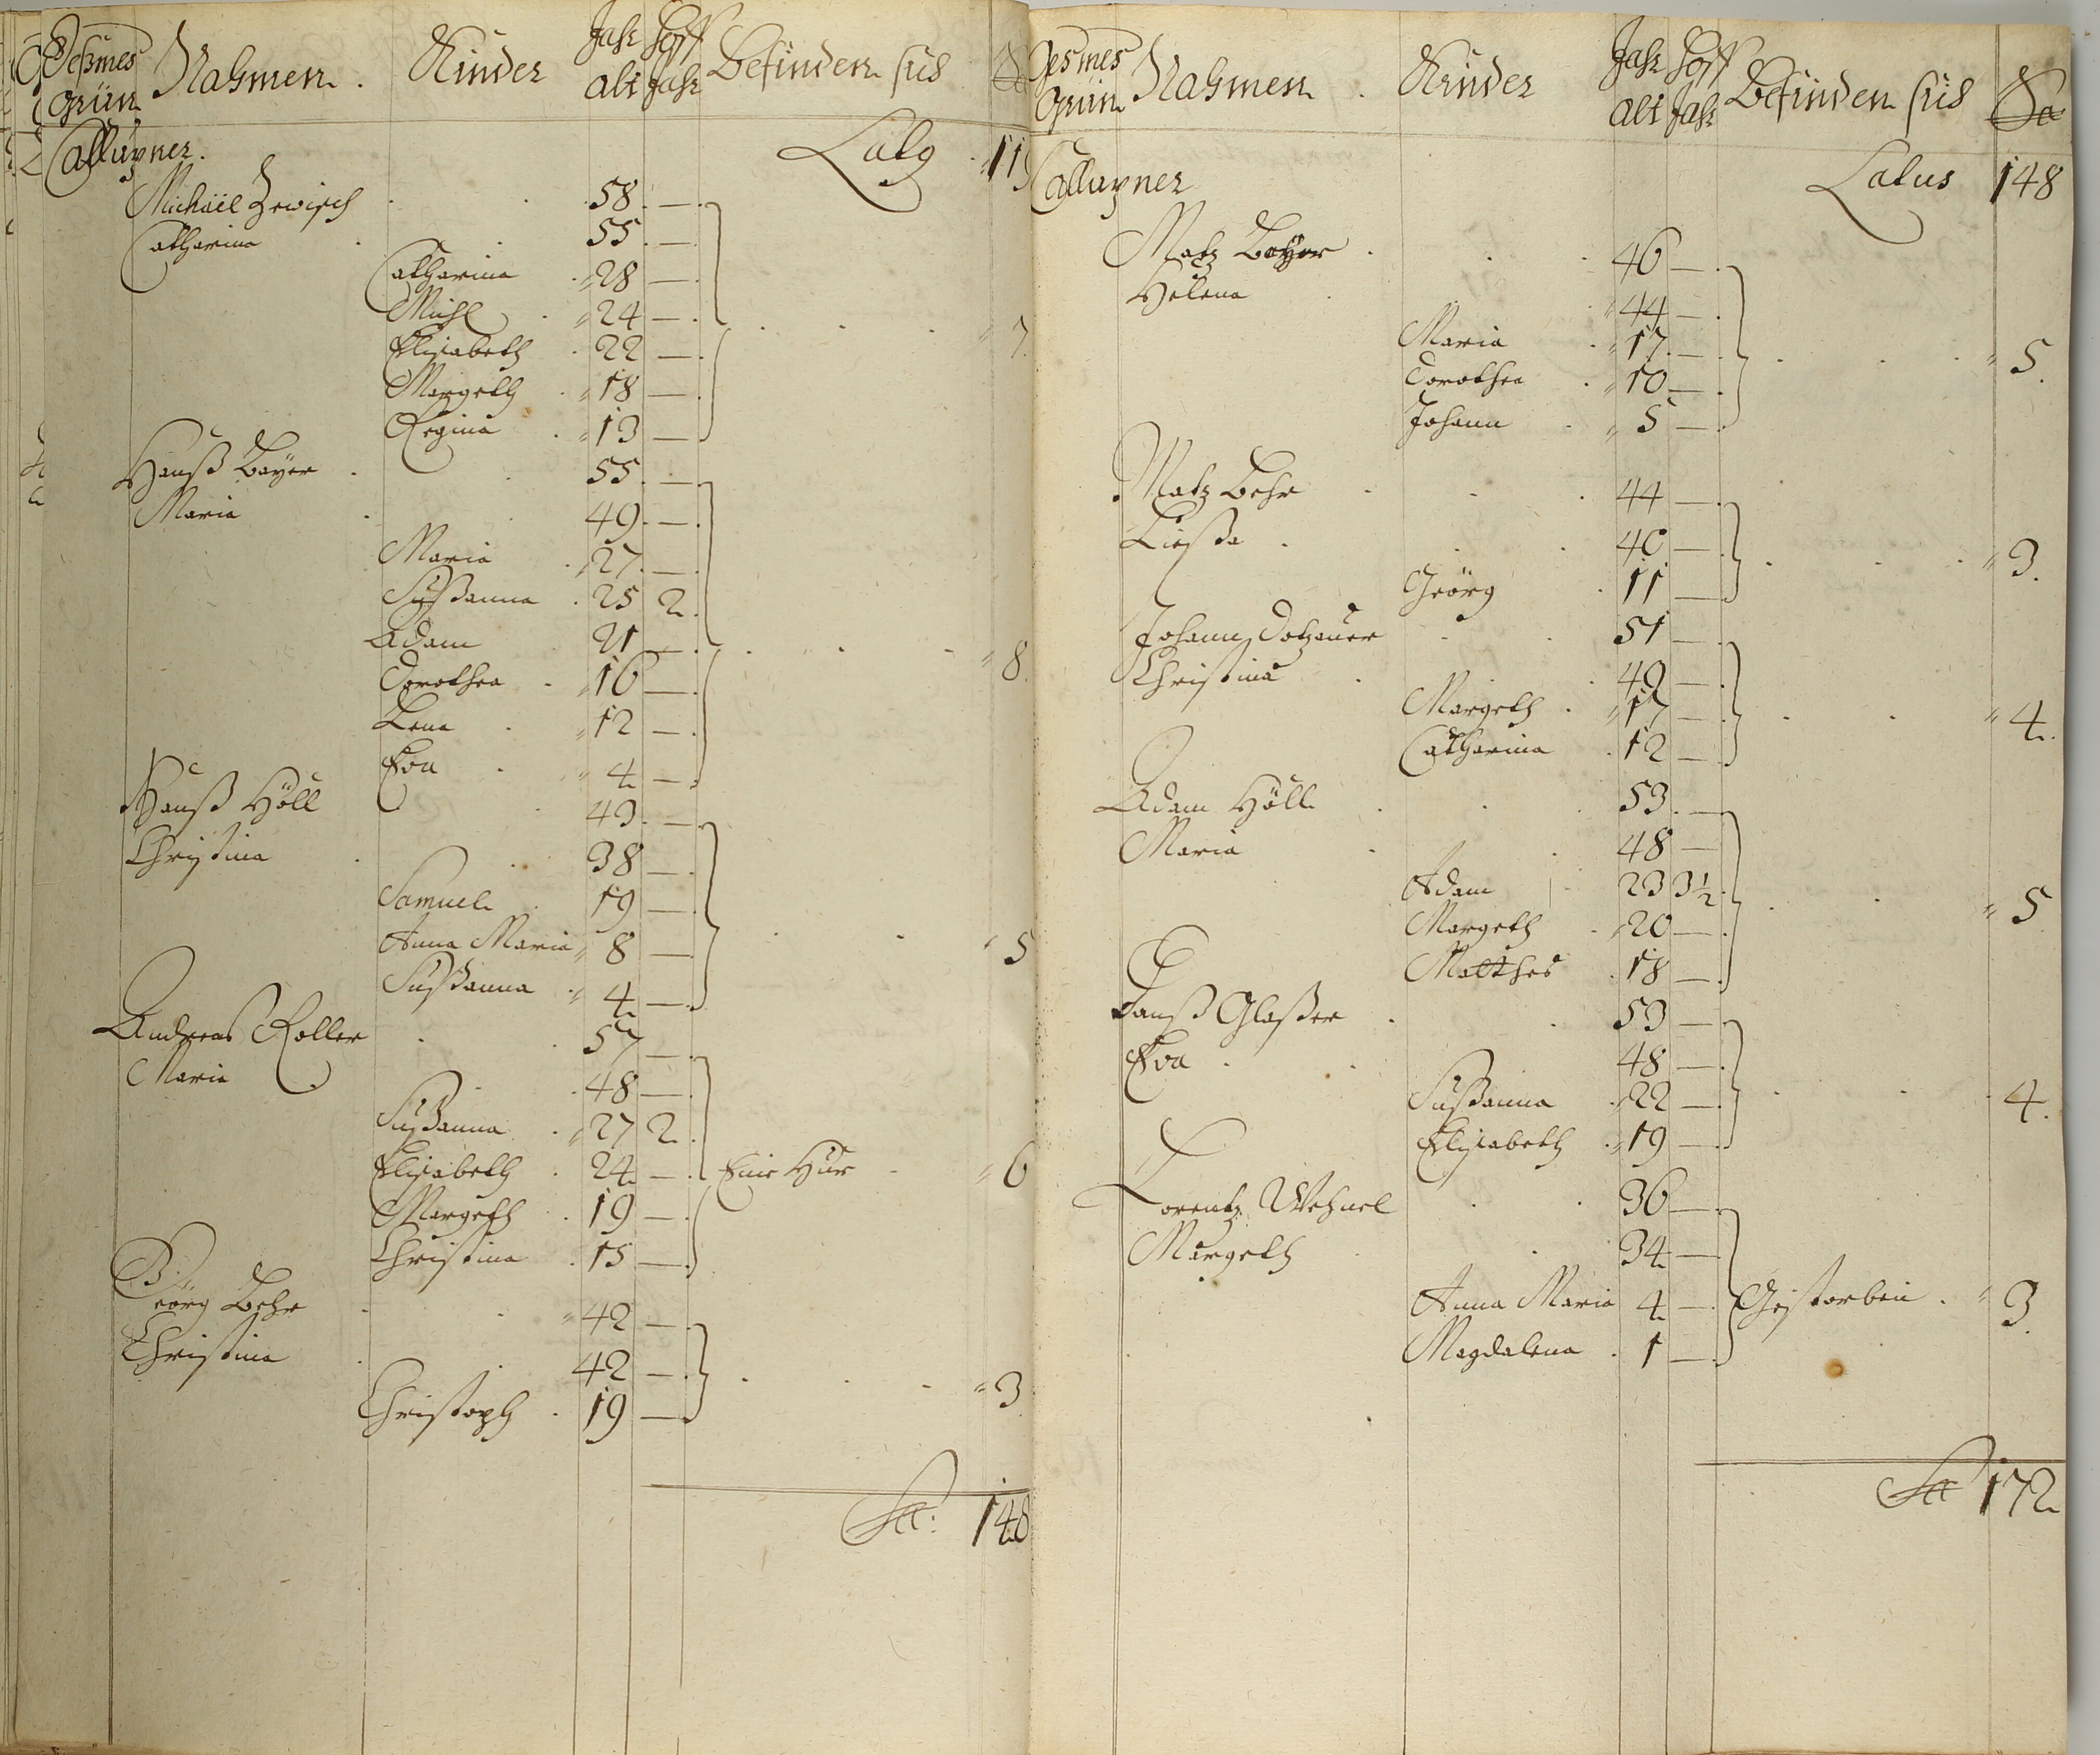 Deßmes Grün Nahmen. Kinder Jahr alt Hoff Jahr Befinden sich Sa
Callupner. Latq 119
Michäel Zewisch 58. —
Catharina 55. —
Catharina 28 —
Michl 24 —
Elisabeth 22 — 7.
Margeth 18 —
Regina 13 —
Hanß Bayer 55. —
Maria 49. —
Maria 27. —
Sußanna 25 2.
Adam 21 — 8.
Dorothea 16 —
Lena 12 —
Eva 4 —
Hanß Höll 43. —
Christina 38 —
Samuel 19 —
Anna Maria 8 — 5
Sußanna 4 —
Andreas Roller 57 —
Maria 48 —
Sußanna 27 2
Elisabeth 24 — Eine Hur 6
Margeth 19 —
Christina 15 —
Georg Behr 42 —
Christina 42 — 3
Christoph 19 —
Sa: 148
Desmes Grün Nahmen. Kinder Jahr alt Hoff Jahr Befinden sich Sa
Callupner Latus 148
Matz Bayer 46 —
Helena 44 —
Maria 17. — 5.
Dorothea 10 —
Johann 5 —
Matz Behr 44 —
Ließa 40 — 3.
Geörg 11 —
Johann Dotzauer 51 —
Christina 49 —
Margeth 17 — 4.
Catharina 12 —
Adam Höll 53. —
Maria 48 —
Adam 23 3½
Margeth 20 — 5
Matthes 18 —
Hanß Glaßer 53 —
Eva 48 —
Sußanna 22 — 4.
Elisabeth 19 —
Lorentz Wehnel 36 —
Margeth 34 —
Anna Maria 4 — Gestorben. 3.
Magdalena 1 —
Sa 172